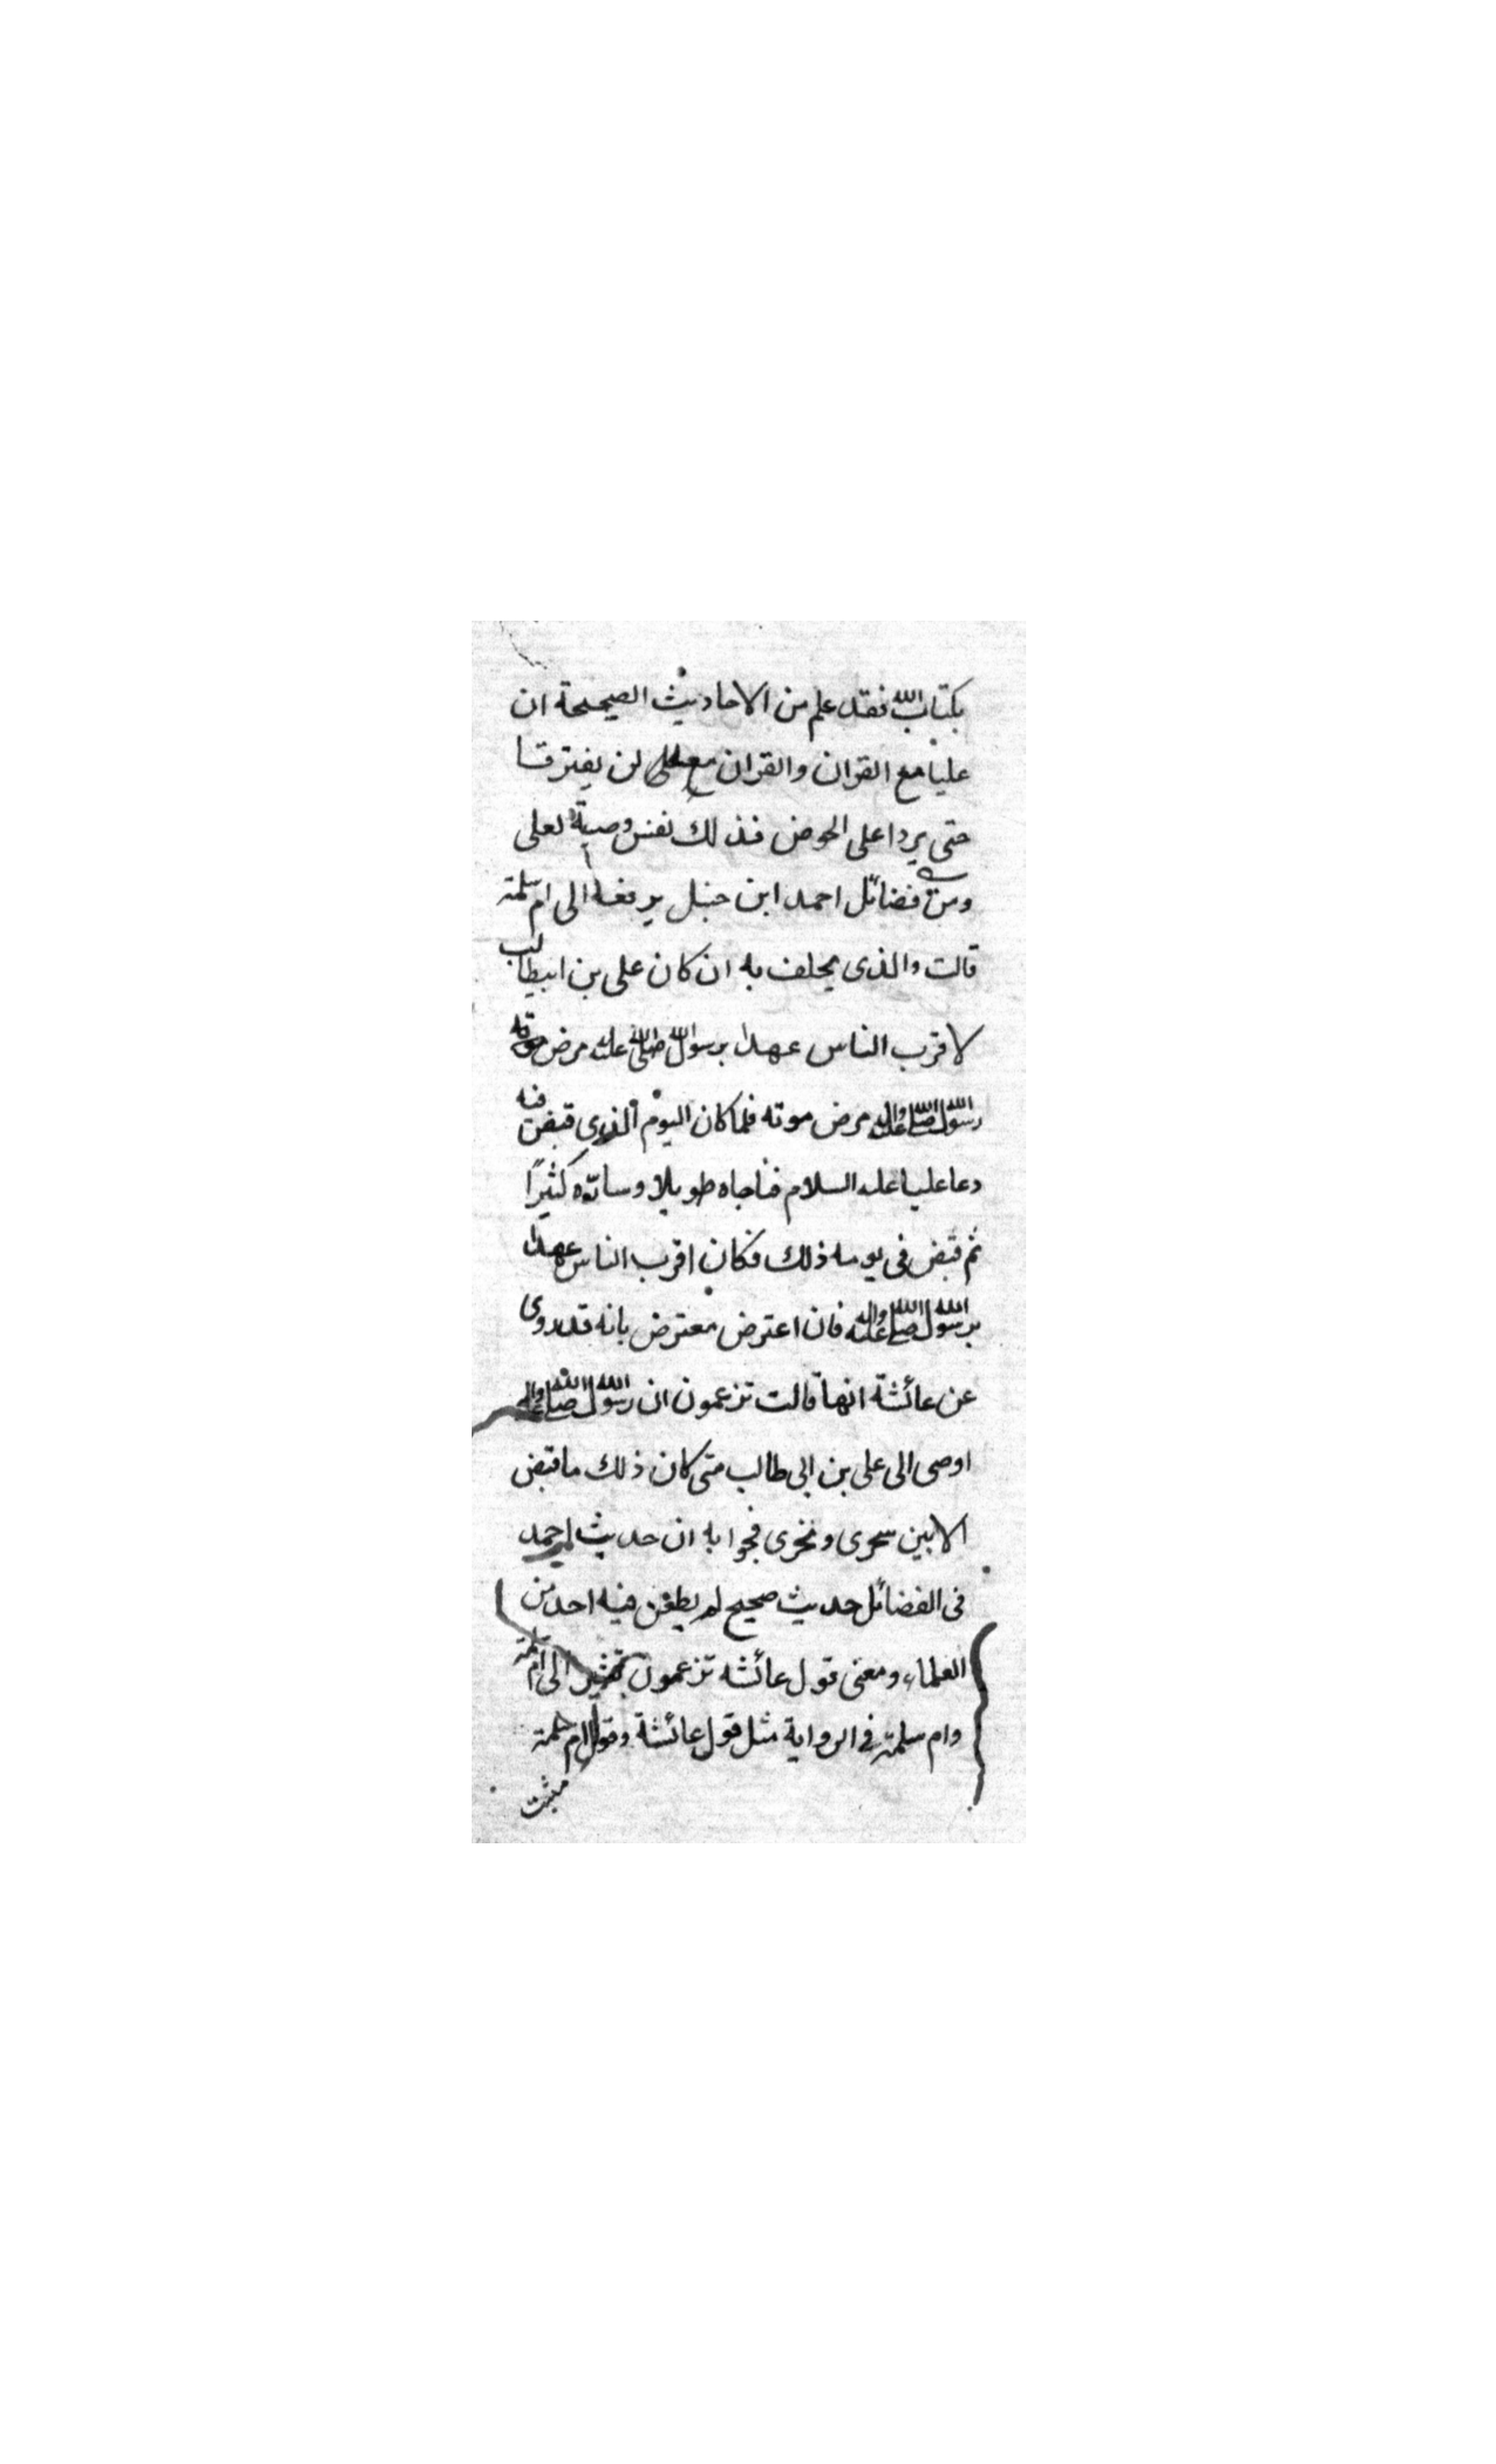 بكتاب الله فقد علم من الاحاديث الصحيحة ان
عليا مع القران والقران مع على لن يفترقا
حتى يردا على الحوض فذلك نفس وصية لعلى
ومن فضائل احمد ابن حنبل يرفعه الى ام سلمة
قالت والذى يحلف به ان كان على بن ابيطالب
لاقرب الناس عهدا برسول الله صلى الله عليه مرض موته
رسول الله صلى الله عليه واله مرض موته فلما كان اليوم الذى قبض فيه
دعا عليا عليه السلام فناجاه طويلا وسارّه كثيرًا
ثم قبض فى يومه ذلك فكان اقرب الناس عهدا
برسول الله صلى الله عليه واله فان اعترض معترض بانه قد روى
عن عائشة انها قالت تزعمون ان رسول الله صلى الله عليه واله
اوصى الى على بن ابى طالب متى كان ذلك ما قبض
الا بين سحرى ونحرى فجوابه ان حديث احمد
فى الفضائل حديث صحيح لم يطعن فيه احد من
العلماء ومعنى قول عائشه تزعمون تشير الى ام سلمة
وام سلمة فى الرواية مثل قول عائشة وقول ام سلمة
مثبت